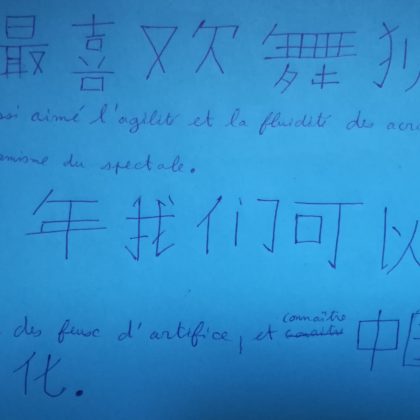 最喜欢舞
ssi aimé l'agilité et la fluidité des acr
namisme du spectale.
年我们可以
des feux d'artifice, et connaître 中国
化.